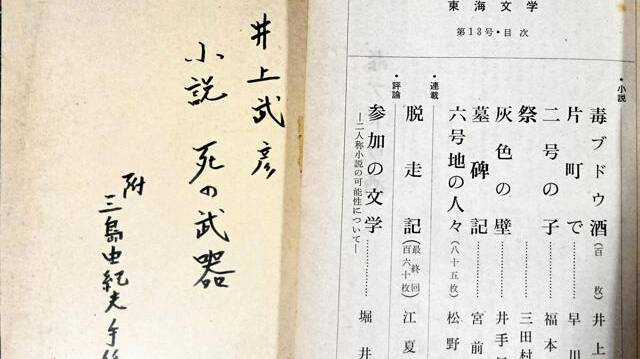 東海文学
第13号・目次
・小説
毒ブドウ酒(百枚)井上
片町で………早川
二号の子………福本
祭………三田村
灰色の壁………井手
墓碑記………宮前
六号地の人々(八十五枚)松野
・連載
脱走記(最終回百六十枚)江夏
・評論
参加の文学………堀井
―二人称小説の可能性について―
井上武彦
小説 死の武器
附 三島由紀夫手